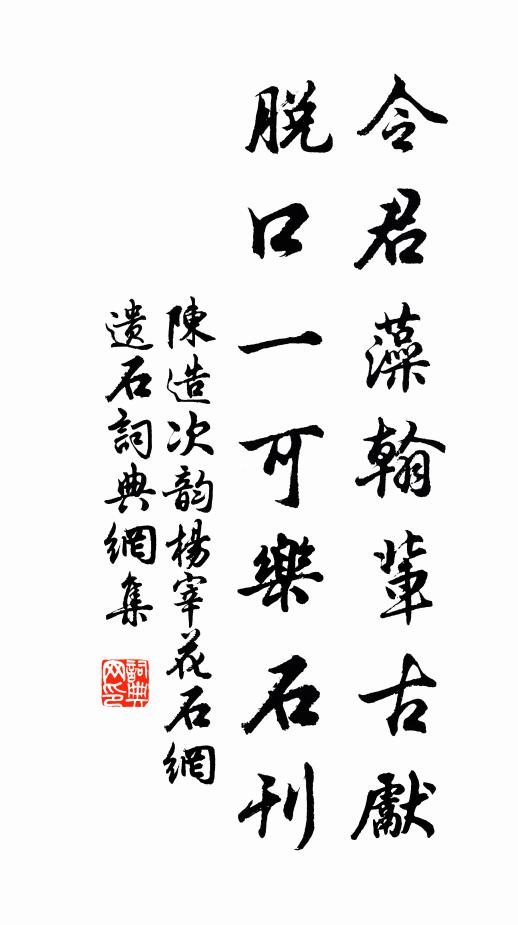 令君藻翰軰古獻
脱口一可樂石刊
陳造次韵楊宰花石網
遺石詞典網集
詞典网印